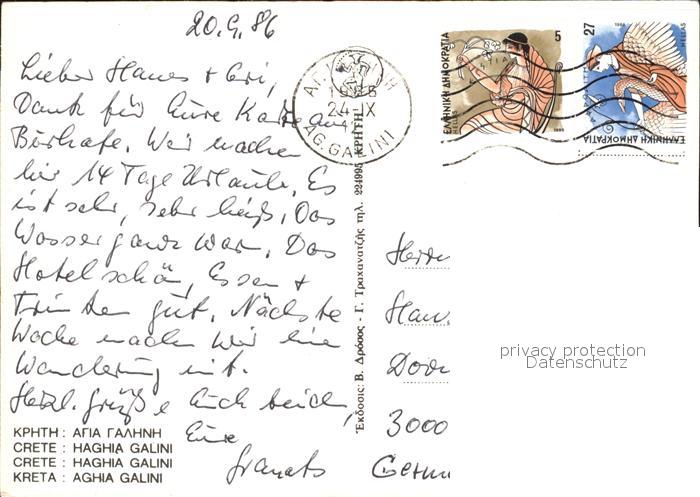 20.9.86
Lieber Hans + Evi,
Dank für Eure Karte aus
Wir machen
hier 14 Tage Urlaub. Es
ist sehr, sehr heiß. Das
Wasser ganz warm. Das
Hotel schön, Essen +
Trinken gut. Nächste
Woche machen wir eine
Wanderung mit.
Herzl. Grüße Euch beiden,
Eure
ΚΡΗΤΗ : ΑΓΙΑ ΓΑΛΗΝΗ
CRETE : HAGHIA GALINI
CRETE : HAGHIA GALINI
KRETA : AGHIA GALINI
Ἔκδοσις: Β. Δρόσος - Γ. Τραχανατζής τηλ. 224995 ΚΡΗΤΗ
1986
24 IX
AG. GALINI
5
ΕΛΛΗΝΙΚΗ ΔΗΜΟΚΡΑΤΙΑ
HELLAS
1986
27
1986
HELLAS
ΕΛΛΗΝΙΚΗ ΔΗΜΟΚΡΑΤΙΑ
Herrn
3000
privacy protection
Datenschutz